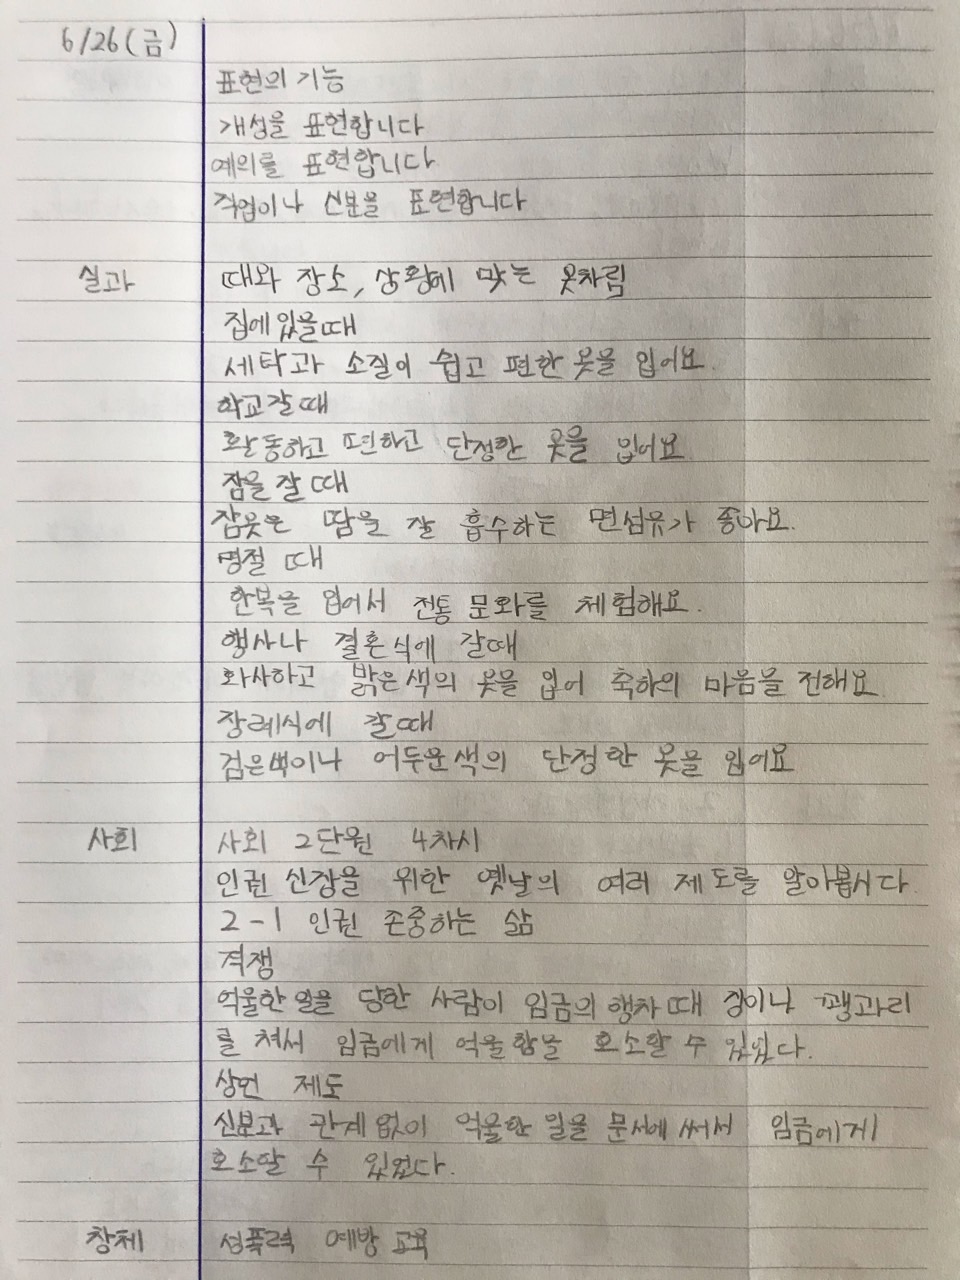 6/26(금)
표현의 기능
개성을 표현합니다
예의를 표현합니다
직업이나 신분을 표현합니다
실과 때와 장소, 상황에 맞는 옷차림
집에 있을때
세탁과 소질이 쉽고 편한 옷을 입어요.
학교갈때
활동하고 편하고 단정한 옷을 입어요
잠을 잘 때
잠옷은 땀을 잘 흡수하는 면섬유가 좋아요.
명절 때
한복을 입어서 전통 문화를 체험해요.
행사나 결혼식에 갈때
화사하고 밝은색의 옷을 입어 축하의 마음을 전해요
장례식에 갈때
검은색이나 어두운색의 단정한 옷을 입어요
사회 사회 2단원 4차시
인권 신장을 위한 옛날의 여러 제도를 알아봅시다.
2-1 인권 존중하는 삶
격쟁
억울한 일을 당한 사람이 임금의 행차 때 징이나 꽹과리
를 쳐서 임금에게 억울함을 호소할 수 있었다.
상언 제도
신분과 관계없이 억울한 일을 문서에 써서 임금에게
호소할 수 있었다.
창체 성폭력 예방 교육